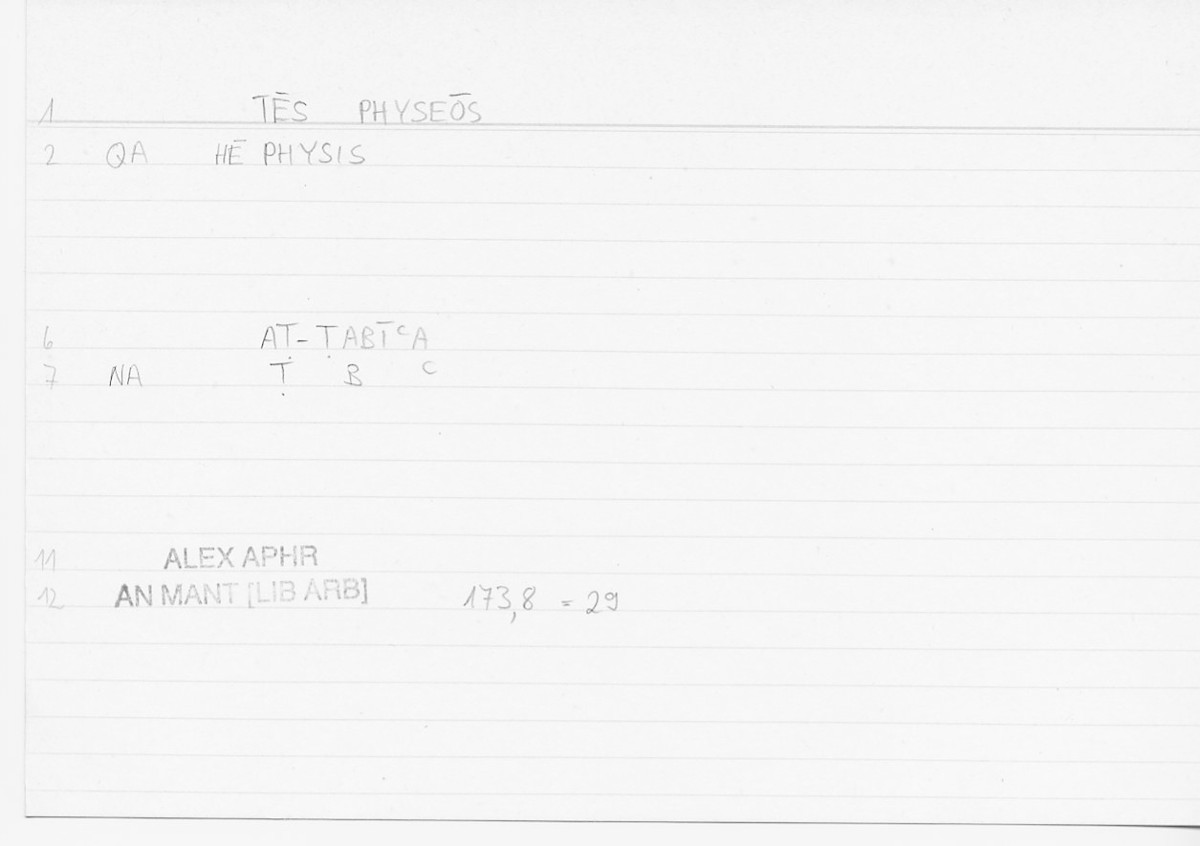 1 TĒS PHYSEŌS
2 QA HĒ PHYSIS
6 AṬ-ṬABĪᶜA
7 NA Ṭ B ᶜ
11 ALEX APHR
12 AN MANT [LIB ARB] 173,8 = 29